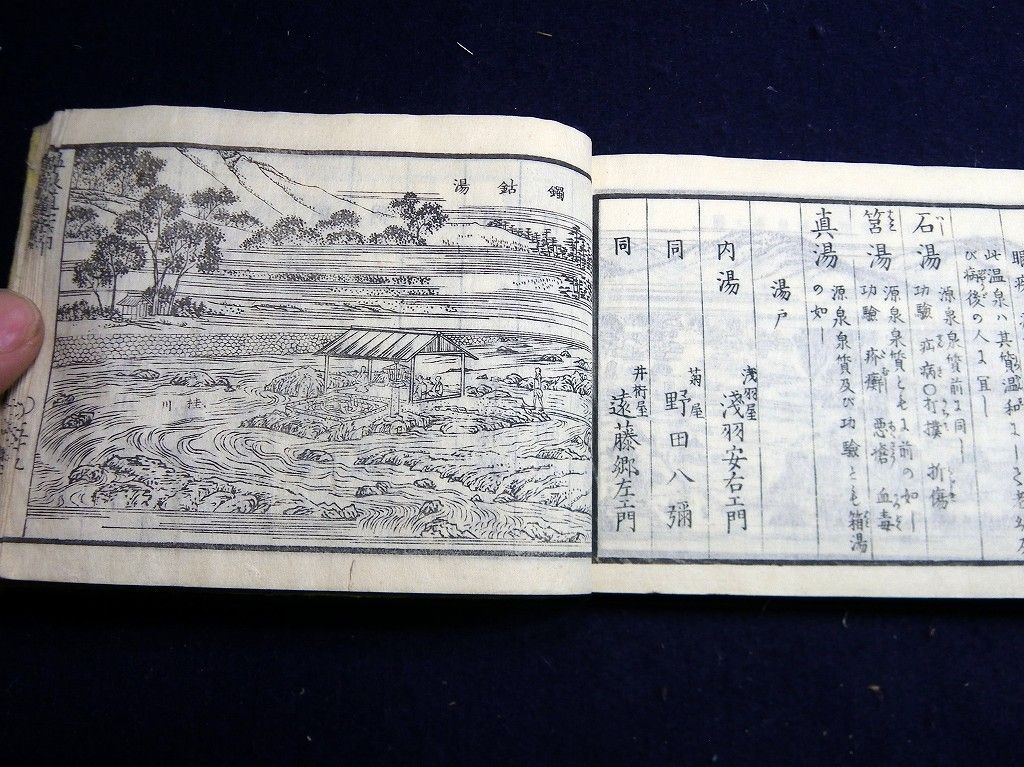 此温泉ハ其質温和
び病後の人に宜し
石湯
源泉泉質前に同し
功驗 疝病〇打撲 折傷
筥湯
源泉泉質とも前の如し
功驗 疥癬 悪瘡 血毒
真湯
源泉泉質及び功驗とも箱湯
の如し
湯戸
内湯 浅羽屋 淺羽安右エ門
同 菊屋 野田八彌
同 井桁屋 遠藤郷左エ門
獨鈷湯
桂川